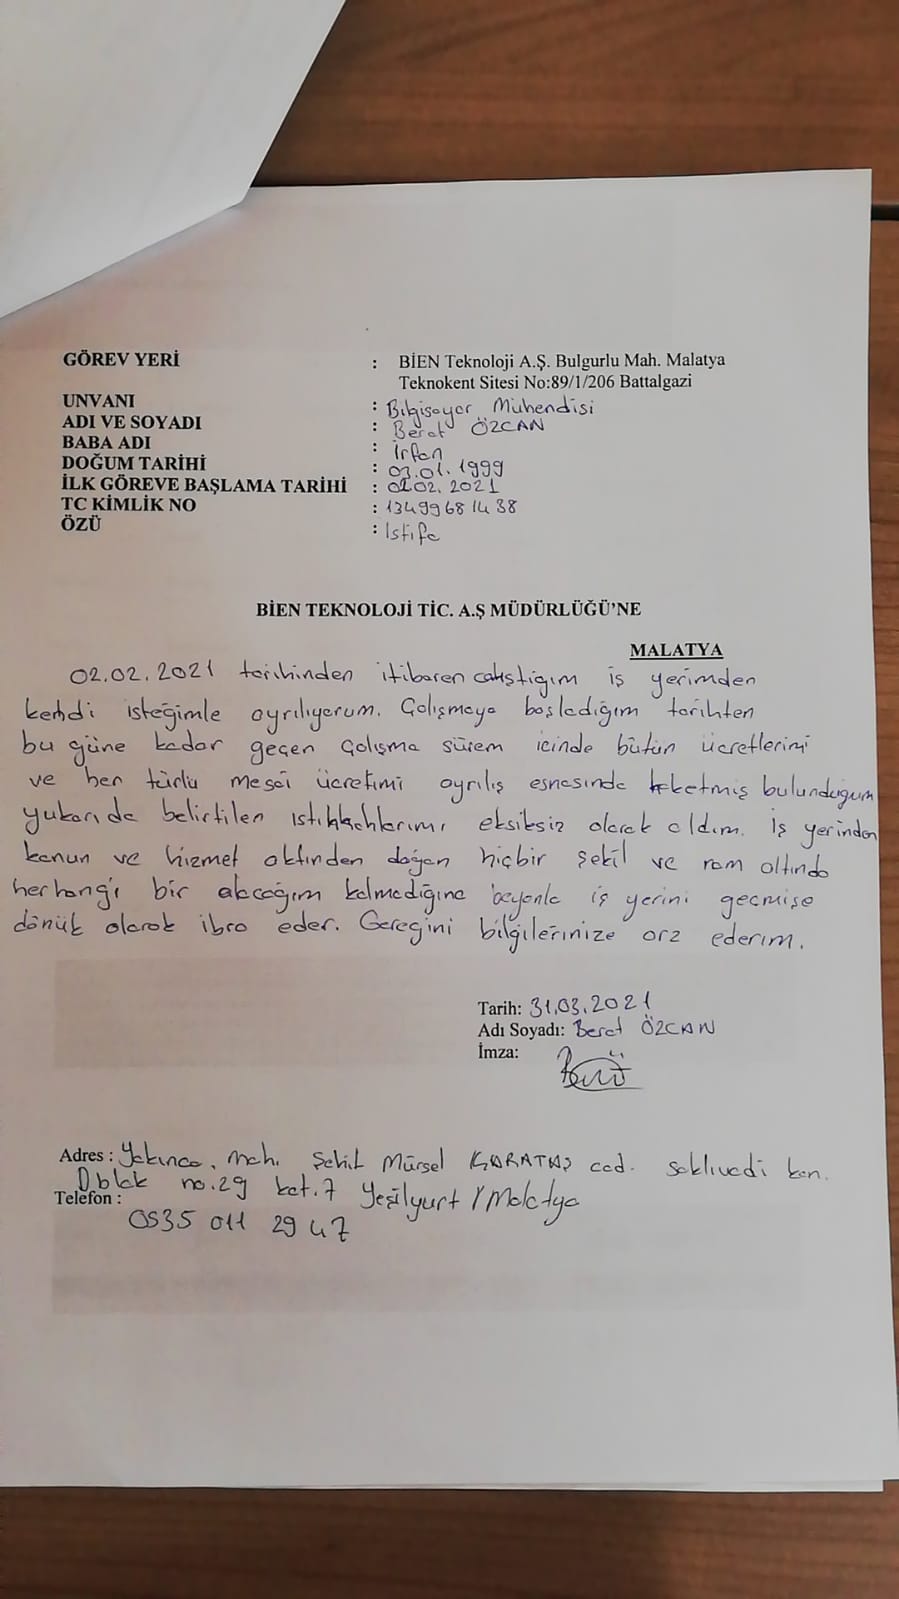 GÖREV YERİ : BİEN Teknoloji A.Ş. Bulgurlu Mah. Malatya
Teknokent Sitesi No:89/1/206 Battalgazi
UNVANI : Bilgisayar Mühendisi
ADI VE SOYADI : Berat ÖZCAN
BABA ADI : İrfan
DOĞUM TARİHİ : 03.01.1999
İLK GÖREVE BAŞLAMA TARİHİ : 02.02.2021
TC KİMLİK NO : 13499681438
ÖZÜ : İstifa
BİEN TEKNOLOJİ TİC. A.Ş MÜDÜRLÜĞÜ'NE
MALATYA
02.02.2021 tarihinden itibaren çalıştığım iş yerimden
kendi isteğimle ayrılıyorum. Çalışmaya başladığım tarihten
bu güne kadar geçen çalışma sürem içinde bütün ücretlerimi
ve her türlü mesai ücretimi ayrılış esnasında haketmiş bulunduğum
yukarıda belirtilen istihkaklarımı eksiksiz olarak aldım. İş yerinden
kanun ve hizmet aktinden doğan hiçbir şekil ve nam altında
herhangi bir alacağım kalmadığına beyanla iş yerini geçmişe
dönük olarak ibra eder. Gereğini bilgilerinize arz ederim.
Tarih: 31.03.2021
Adı Soyadı: Berat ÖZCAN
İmza:
Adres : Yakınca. mah. Şehit Mürsel KARATAŞ cad. saklıvadi kon.
D blok no.29 kat.7 Yeşilyurt / Malatya
Telefon :
0535 011 29 47